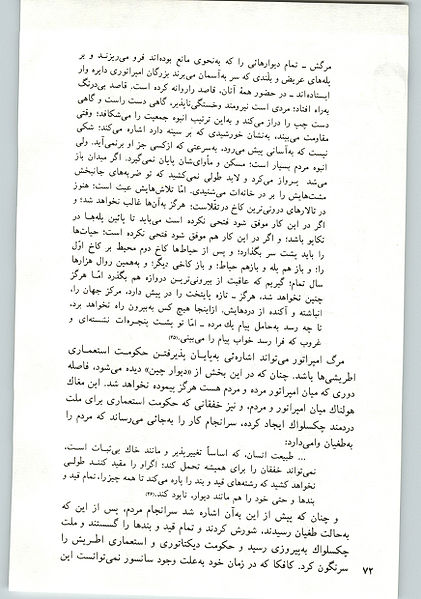 مرگش ـ تمام دیوارهائی را که به‌نحوی مانع بوده‌اند فرو می‌ریزند و بر
پله‌های عریض و بلندی که سر به‌آسمان می‌برند بزرگان امپراتوری دایره وار
ایستاده‌اند ـ در حضور همهٔ آنان، قاصد را روانه کرده است. قاصد بی‌درنگ
به‌راه افتاد؛ مردی است نیرومند وخستگی‌ناپذیر، گاهی دست راست و گاهی
دست چپ را دراز می‌کند و به‌این ترتیب انبوه جمعیت را می‌شکافد؛ وقتی
مقاومت می‌بیند، به‌نشان خورشیدی که بر سینه دارد اشاره می‌کند؛ شکی
نیست که به‌آسانی پیش می‌رود، به‌سرعتی که ازکسی جز او برنمی‌آید. ولی
انبوه مردم بسیار است؛ مسکن و مأوای‌شان پایان نمی‌گیرد. اگر میدان باز
می‌شد پرواز می‌کرد و لابد طولی نمی‌کشید که تو ضربه‌های جانبخش
مشت‌هایش را بر در خانه‌ات می‌شنیدی. امّا تلاش‌هایش عبث است؛ هنوز
در تالارهای درونی‌ترین کاخ در تقلّاست؛ هرگز به‌آن‌ها غالب نخواهد شد؛ و
اگر در این کار موفق شود فتحی نکرده است می‌باید تا پائین پله‌ها در
تکاپو باشد؛ و اگر در این کار هم موفق شود فتحی نکرده است؛ حیاط‌ها
را باید پشت سر بگذارد؛ و پس از حیاط‌ها کاخ دوم محیط بر کاخ اوّل
را؛ و باز هم پله و بازهم حیاط؛ و باز کاخی دیگر؛ و به‌همین روال هزارها
سال تمام؛ گیریم که عاقبت از بیرونی‌ترین دروازه هم بگذرد امّا هرگز
چنین نخواهد شد، هرگز ـ تازه پایتخت را در پیش دارد، مرکز جهان را،
انباشته و آکنده از دردهایش. ازاینجا هیچ کس به‌بیرون راه نخواهد برد،
تا چه رسد به‌حامل پیام یك مرده ـ امّا تو پشت پنجره‌ات نشسته‌ای و
غروب که فرا رسد خواب پیام را می‌بینی.(۲۵)
مرگ امپراتور می‌تواند اشاره‌ئی به‌پایان پذیرفتن حکومت استعماری
اطریشی‌ها باشد. چنان که در این بخش از «دیوار چین» دیده می‌شود، فاصله
دوری که میان امپراتور مرده و مردم هست هرگز پیموده نخواهد شد. این مغاك
هولناك میان امپراتور و مردم، و نیز خفقانی که حکومت استعماری برای ملت
دردمند چکسلواك ایجاد کرده، سرانجام کار را به‌جائی می‌رساند که مردم را
به‌طغیان وامی‌دارد:
... طبیعت انسان، که اساساً تغییرپذیر و مانند خاك بی‌ثبات است،
نمی‌تواند خفقان را برای همیشه تحمل کند؛ اگراو را مقید کننـد طولـی
نخواهد کشید که رشته‌های قید و بند را پاره می‌کند تا همه چیزرا، تمام قید و
بندها و حتی خود را هم مانند دیوار، نابود کند.(۲۶)
و چنان که پیش از این به‌آن اشاره شد سرانجام مردم، پس از این که
به‌حالت طغیان رسیدند، شورش کردند و تمام قید و بندها را گسستند و ملت
چکسلواك به‌پیروزی رسید و حکومت دیکتاتوری و استعماری اطریش را
سرنگون کرد. کافکا که در زمان خود به‌علت وجود سانسور نمی‌توانست این
۷۲